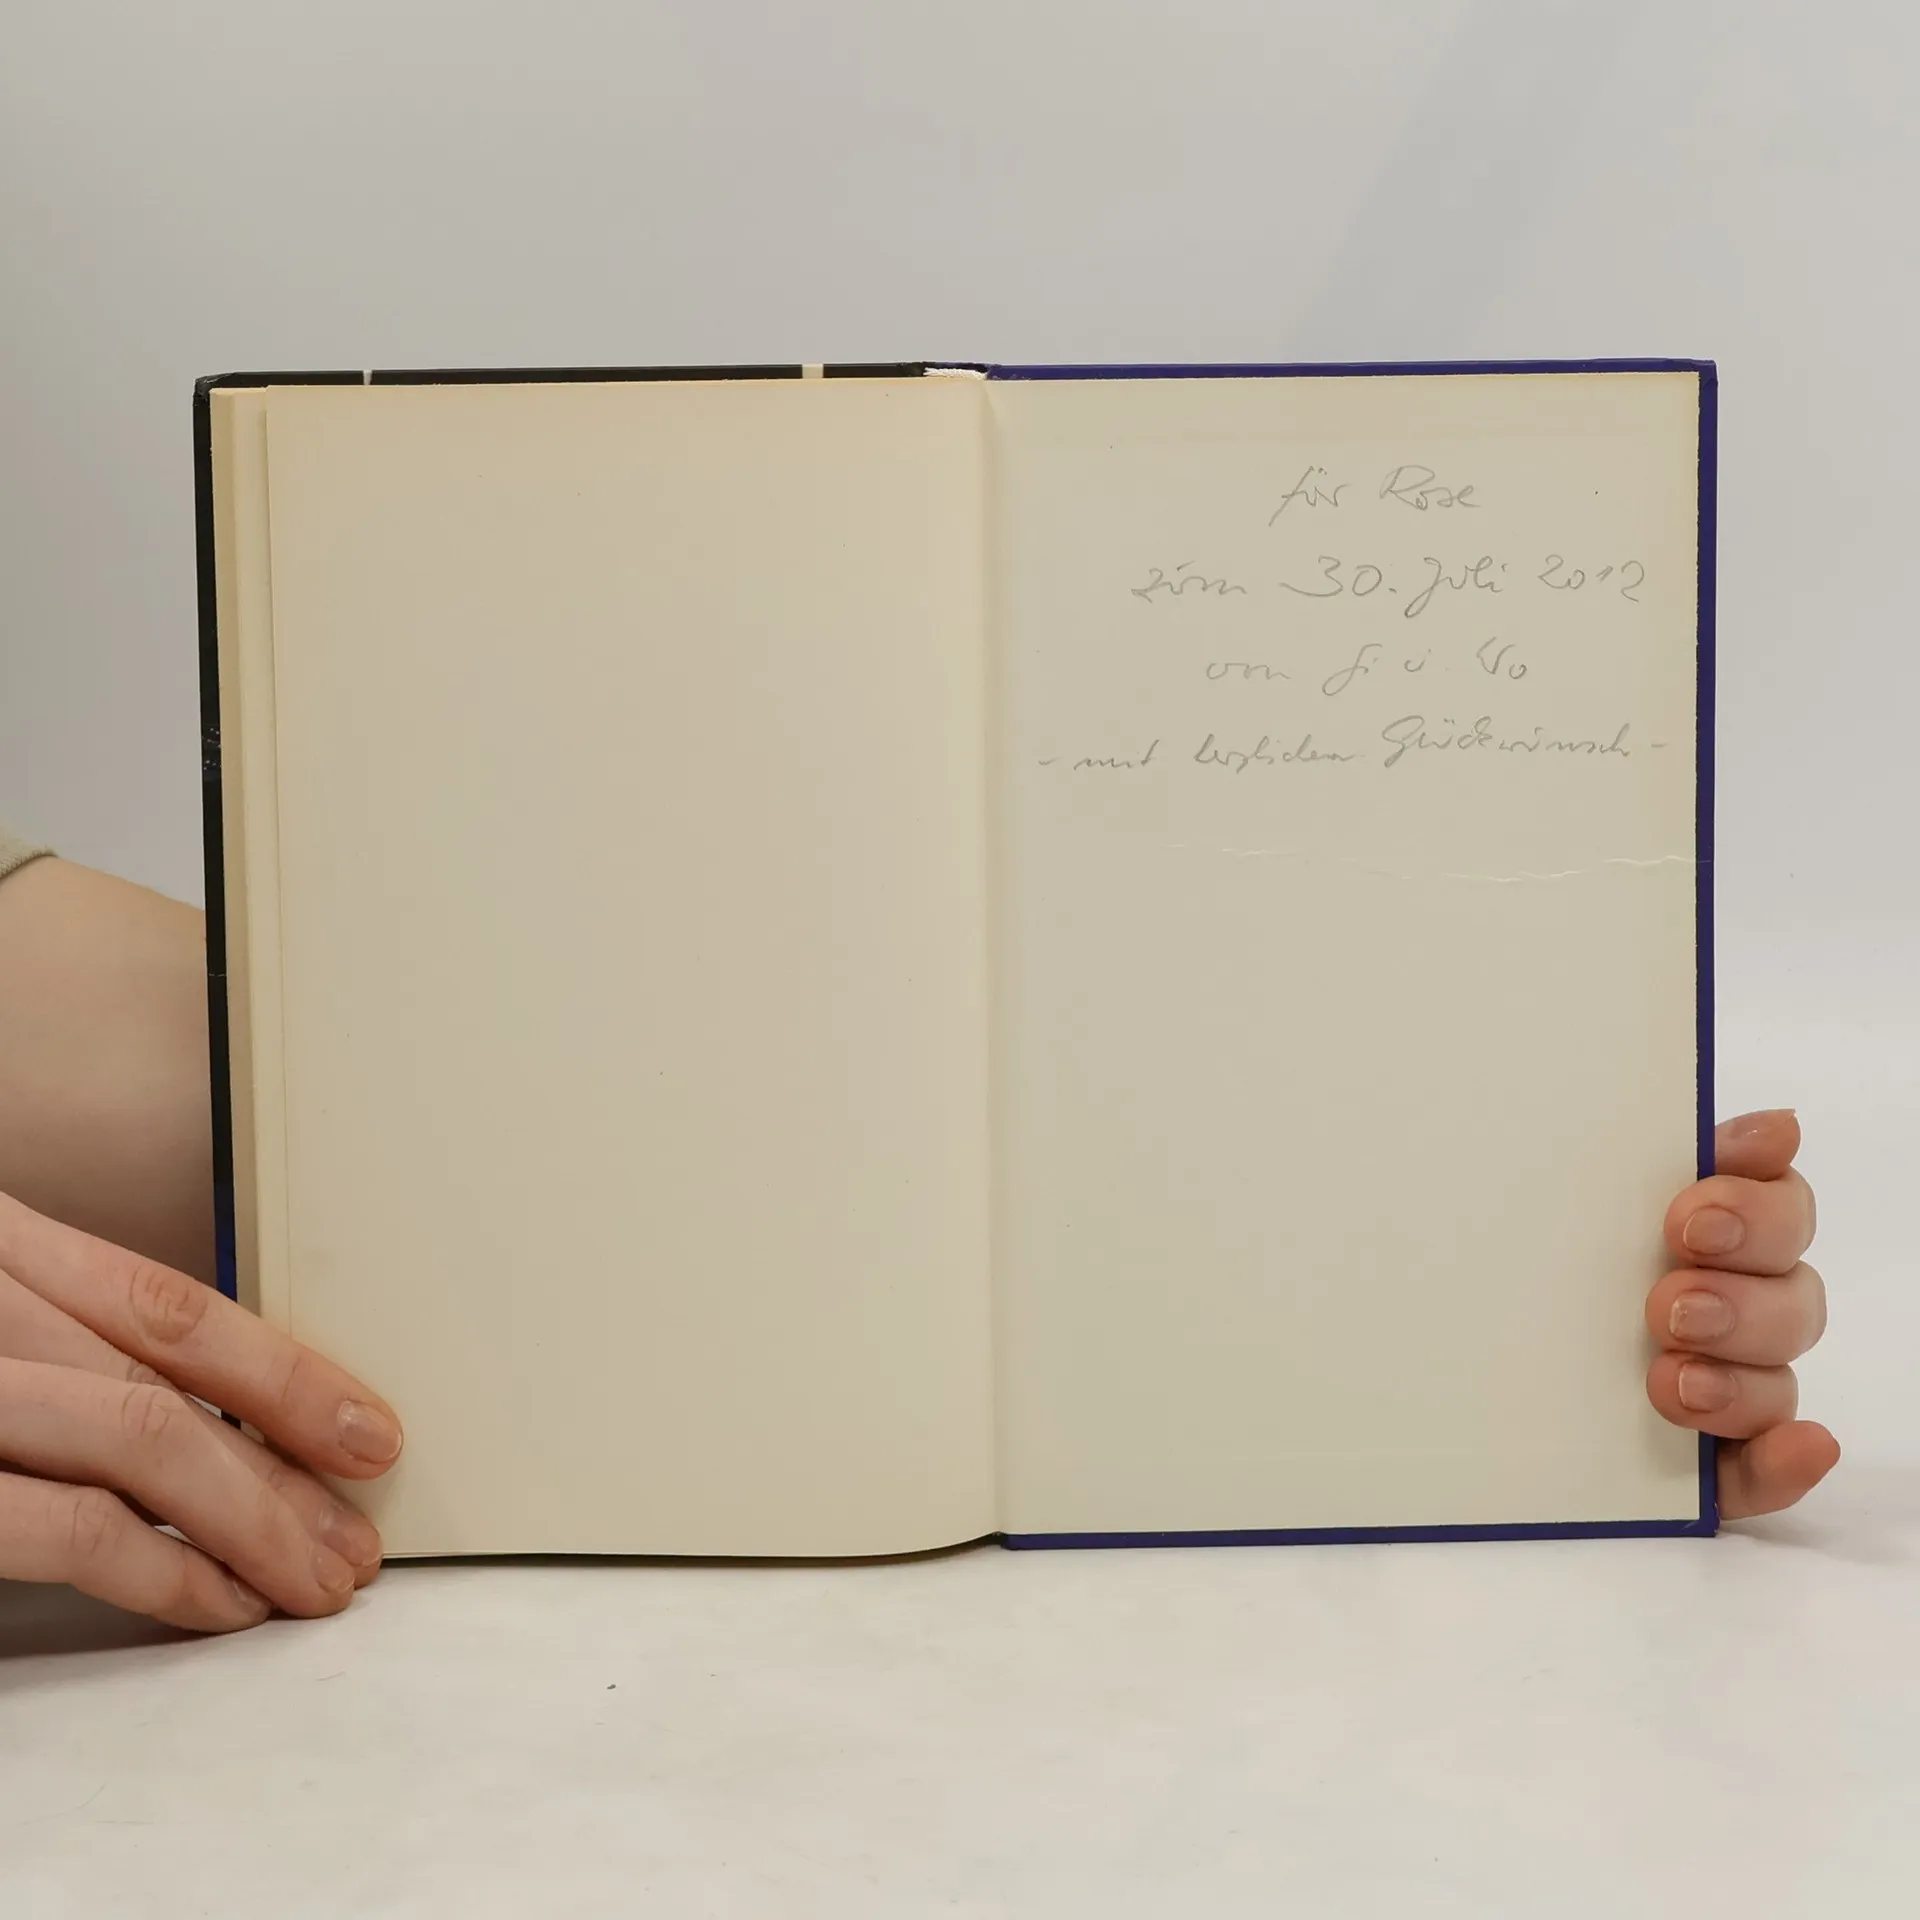 für Rose
zum 30. Juli 2012
von Gi u. Wo
- mit herzlichem Glückwunsch -